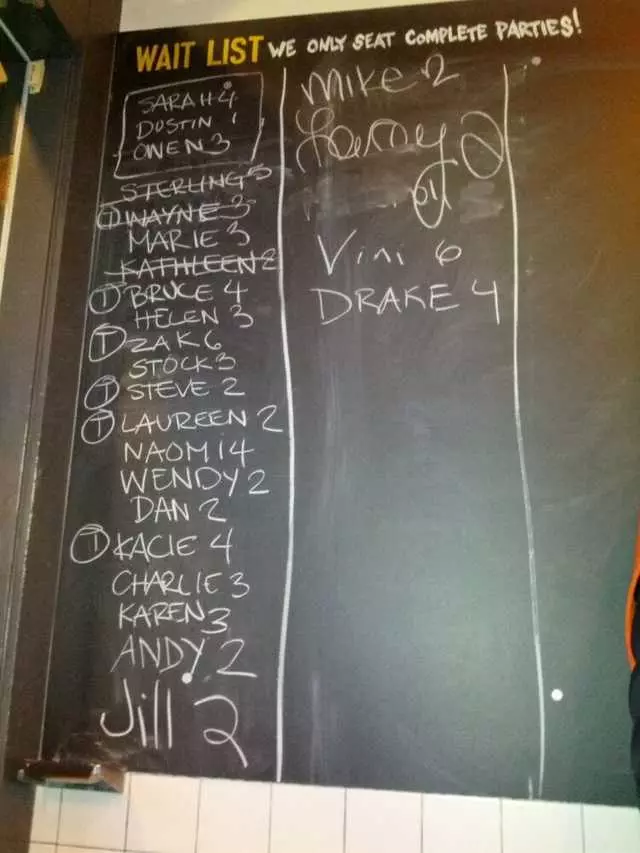 WAIT LIST WE ONLY SEAT COMPLETE PARTIES!
SARAH 4
DUSTIN 1
OWEN 3
STERLING 5
T WAYNE 3
MARIE 3
KATHLEEN 2
T BRUCE 4
HELEN 3
T ZAK 6
STOCK 3
T STEVE 2
T LAUREEN 2
NAOMI 4
WENDY 2
DAN 2
T KACIE 4
CHARLIE 3
KAREN 3
ANDY 2
Jill 2
mike 2
Larry 2
Vini 6
DRAKE 4